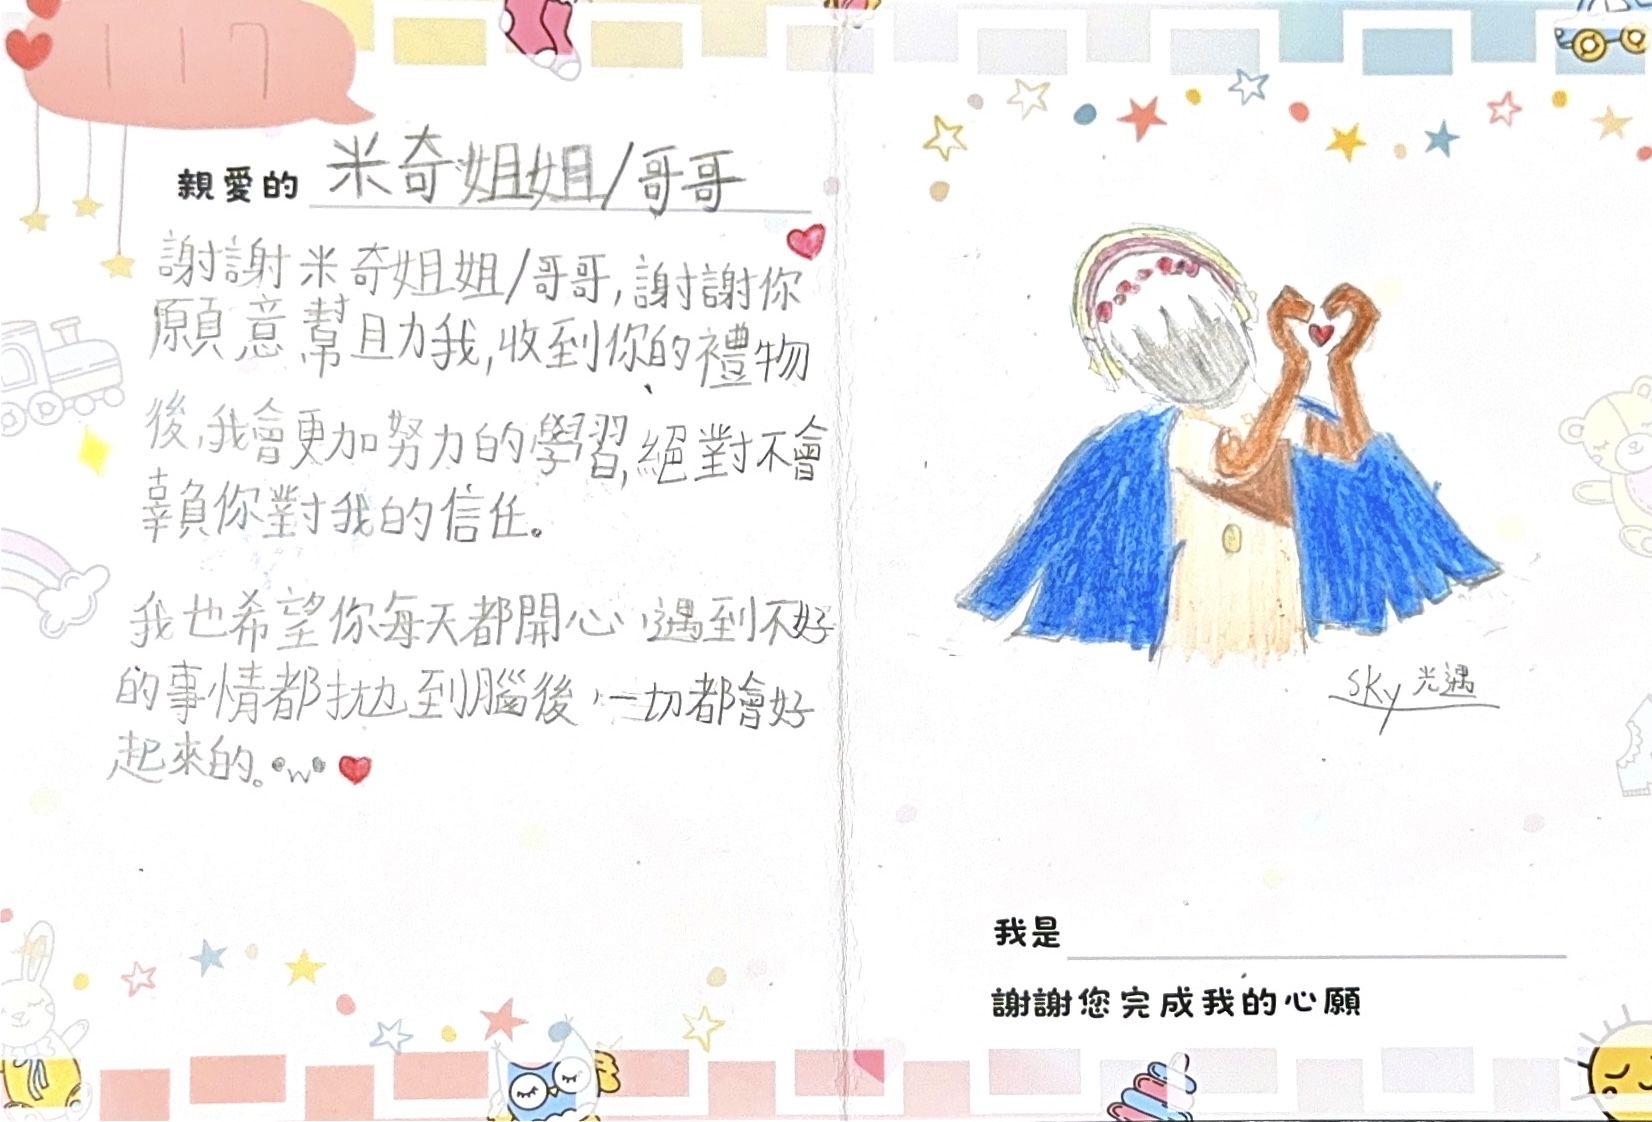 117
親愛的 米奇姐姐/哥哥
謝謝米奇姐姐/哥哥,謝謝你
願意幫助我,收到你的禮物
後,我會更加努力的學習,絕對不會
辜負你對我的信任。
我也希望你每天都開心,遇到不好
的事情都拋到腦後,一切都會好
起來的。•w•
sky 光遇
我是
謝謝您完成我的心願